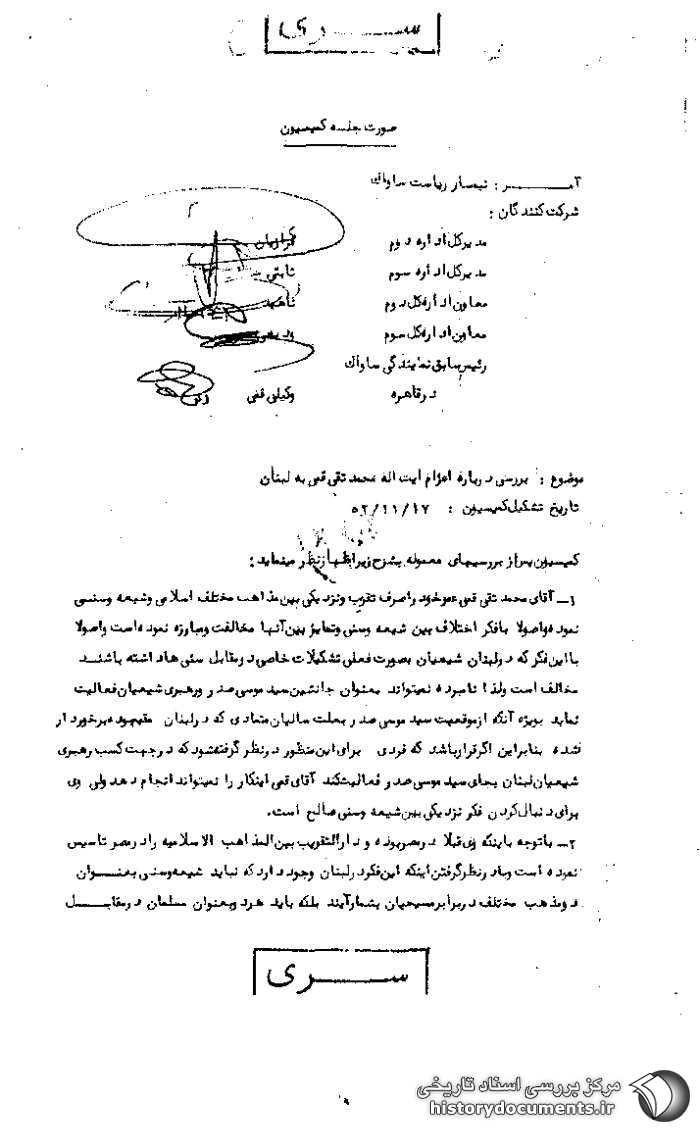 ســـری
صورت جلسه کمیسیون
آمـــــر : تیمسار ریاست ساواک
شرکت کنندگان :
مدیرکل اداره دوم
مدیرکل اداره سوم ثابتی
معاون اداره کل دوم
معاون اداره کل سوم
رئیس سابق نمایندگی ساواک
در قاهره وکیلی قمی
موضوع : بررسی درباره اعزام آیت اله محمد تقی قمی به لبنان
تاریخ تشکیل کمیسیون : ۵۲/۱۱/۱۷
کمیسیون پس از بررسیهای معموله بشرح زیر اظهار نظر مینماید :
۱ـ آقای محمد تقی قمی عمر خود را صرف تقرب و نزدیکی بین مذاهب مختلف اسلامی و شیعه و سنی
نموده و اصولا با فکر اختلاف بین شیعه و سنی و تمایز بین آنها مخالفت و مبارزه نموده است و اصولا
با این فکر که در لبنان شیعیان بصورت فعلی تشکیلات خاصی در مقابل سنی ها داشته باشند
مخالف است ولذا نامبرده نمیتواند بعنوان جانشین سید موسی صدر و رهبری شیعیان فعالیت
نماید بویژه آنکه از موقعیت سید موسی صدر بعلت سالیان متمادی که در لبنان مقیم بوده برخوردار
نشده بنابراین اگر قرار باشد که فردی برای این منظور در نظر گرفته شود که در جهت کسب رهبری
شیعیان لبنان بجای سید موسی صدر فعالیت کند آقای قمی اینکار را نمیتواند انجام دهد ولی وی
برای دنبال کردن فکر نزدیکی بین شیعه و سنی صالح است.
۲ـ با توجه باینکه وی قبلا در مصر بوده و دارالتقریب بین المذاهب الاسلامیه را در مصر تاسیس
نموده است و با در نظر گرفتن اینکه این فکر در لبنان وجود دارد که نباید شیعه و سنی بعنـــوان
دو مذهب مختلف در برابر مسیحیان بشمار آیند بلکه باید هر دو بعنوان مسلمان در مقابـــل
ســـری
مرکز بررسی اسناد تاریخی
historydocuments.ir